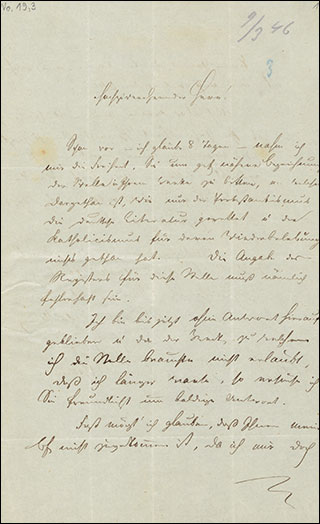 No. 19,3
9/3 46
3
Hochzuverehrender Herr!
Schon vor – ich glaube 8 Tagen – nahm ich
mir die Freiheit, Sie um nähere Bezeichnung
der Stelle Werke zu bitten, in welcher
dargethan ist, wie nur der Protestantismus
die deutsche Literatur gerettet u der
Katholicismus für deren Wiederbelebung
nichts gethan hat. Die Angabe des
Registers für diese Stelle muß nämlich
fehlerhaft sein.
Ich bin bis jetzt ohne Antwort hierauf
geblieben u da der Zweck, zu welchem
ich die Stelle brauche, nicht erlaubt,
daß ich länger warte, so ersuche ich
Sie freundlichst um baldige Antwort.
Fast möcht' ich glauben, daß Ihnen mein
nicht zugekommen ist, da ich mir doch